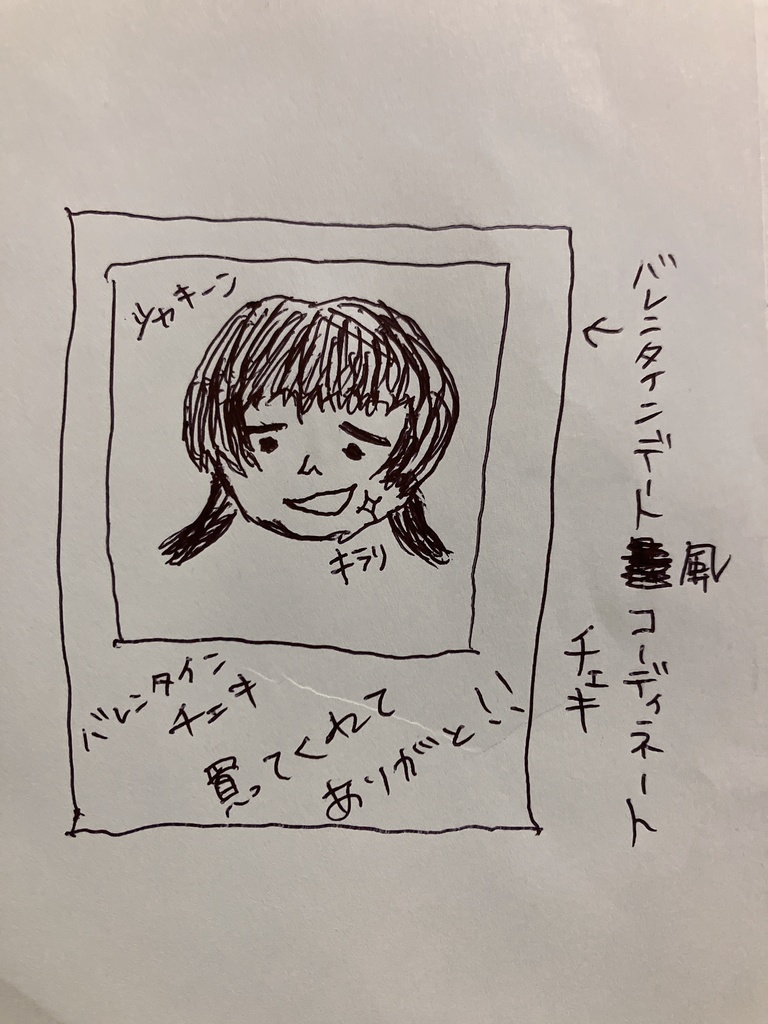 バレンタインデート風コーディネート
チェキ
シャキーン
キラリ
バレンタイン
チェキ
買ってくれて
ありがと!!